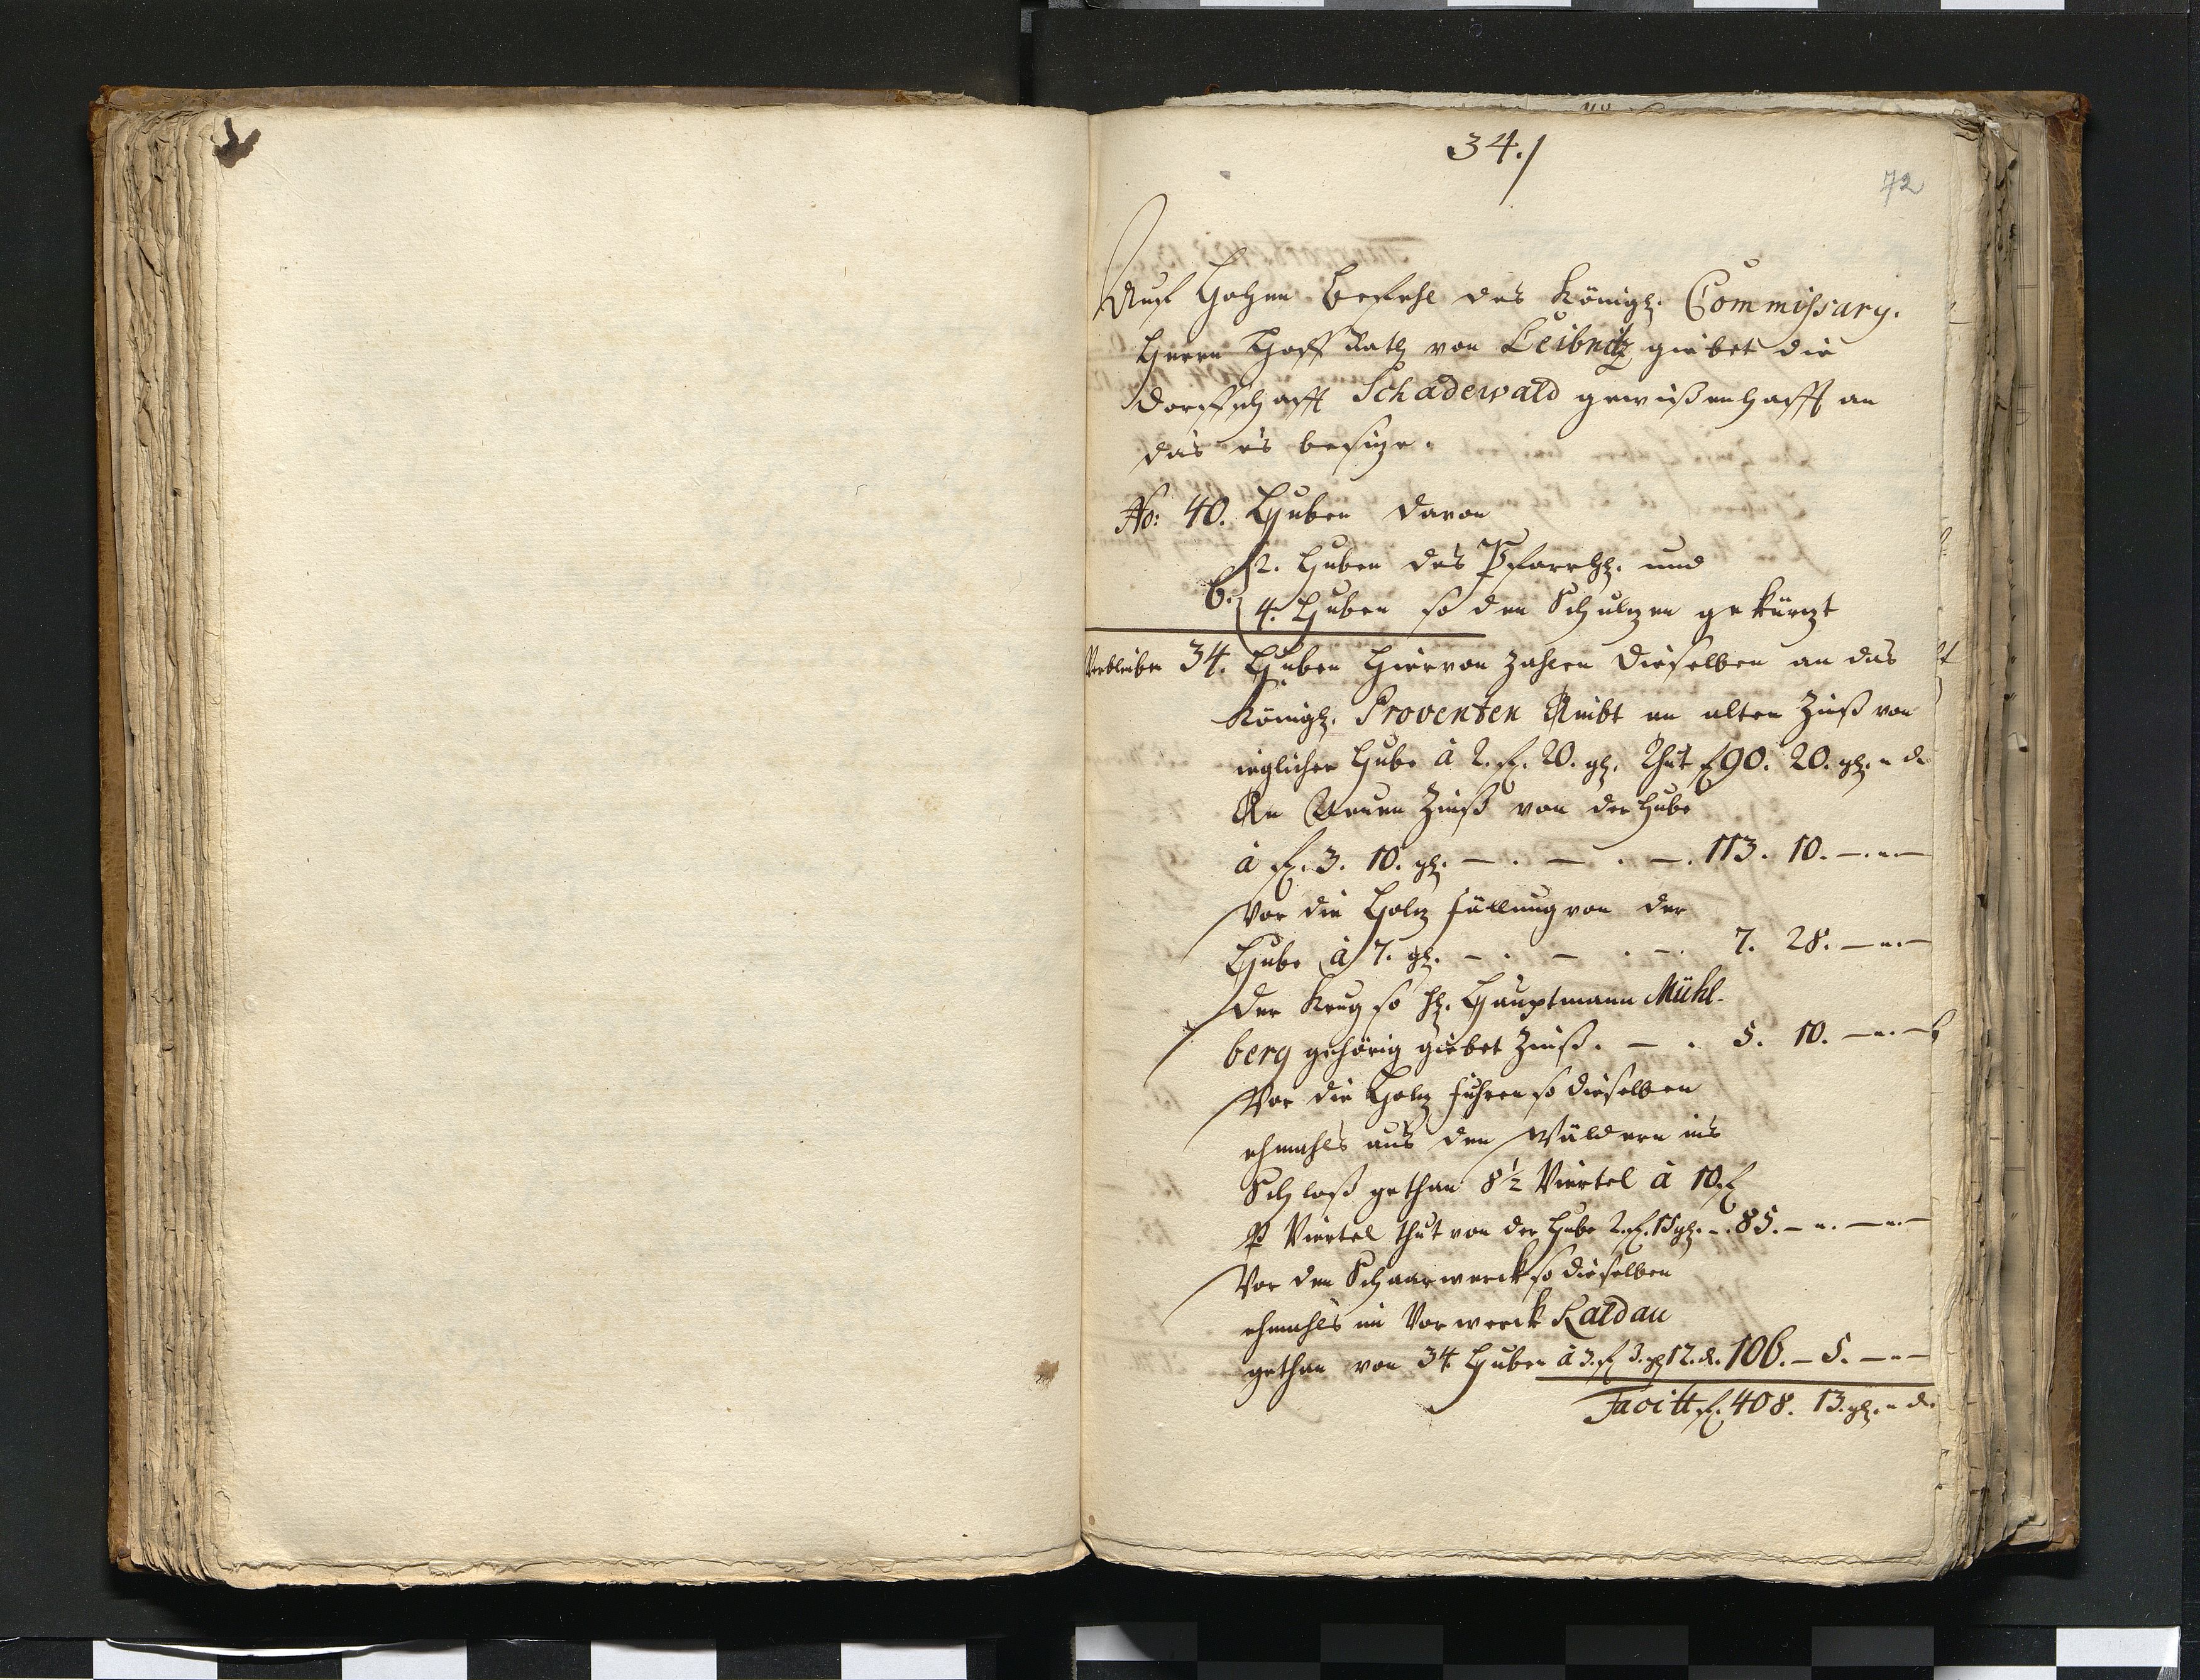 34./
72
Auf Hohen Befehl des Königl. Commissary.
Herrn Hoff Rath von Leibnitz giebet die
Dorffschafft Schadewald gewißenhafft an
das es besitze.
No: 40. Huben davon
2. Huben des Pfarrh. und
6. 4. Huben so den Schultzen gekürtzt
Verbleiben 34. Huben Hiervon zahlen dieselben an das
Königl. Proventen Ambt an alten Zinß von
ieglicher Hube à 2. f. 20. gl. Thut f 90. 20. gl. " d
An Neuen Zinß von der Hube
à f. 3. 10. gl. — . — . — . 113. 10. — " —
Vor die Holtz fällung von der
Hube à 7. gl. — . — . — . 7. 28. — " —
Der Krug so H. Hauptmann Mühl-
berg gehörig giebet Zinß. — . 5. 10. — " —
Vor die Holtz fuhren so dieselben
ehmahls aus den Wäldern ins
Schloß gethan 8½ Viertel à 10 f
p Viertel thut von der Hube 2. f. 15 gl. — . 85. — " — " —
Vor den Schaarwerck so dieselben
ehmahls im Vorwerck Kaldau
gethan von 34. Huben à 3. f 3. gl 12. d. 106. — 5. — " —
Facitt f. 408. 13. gl. " d.